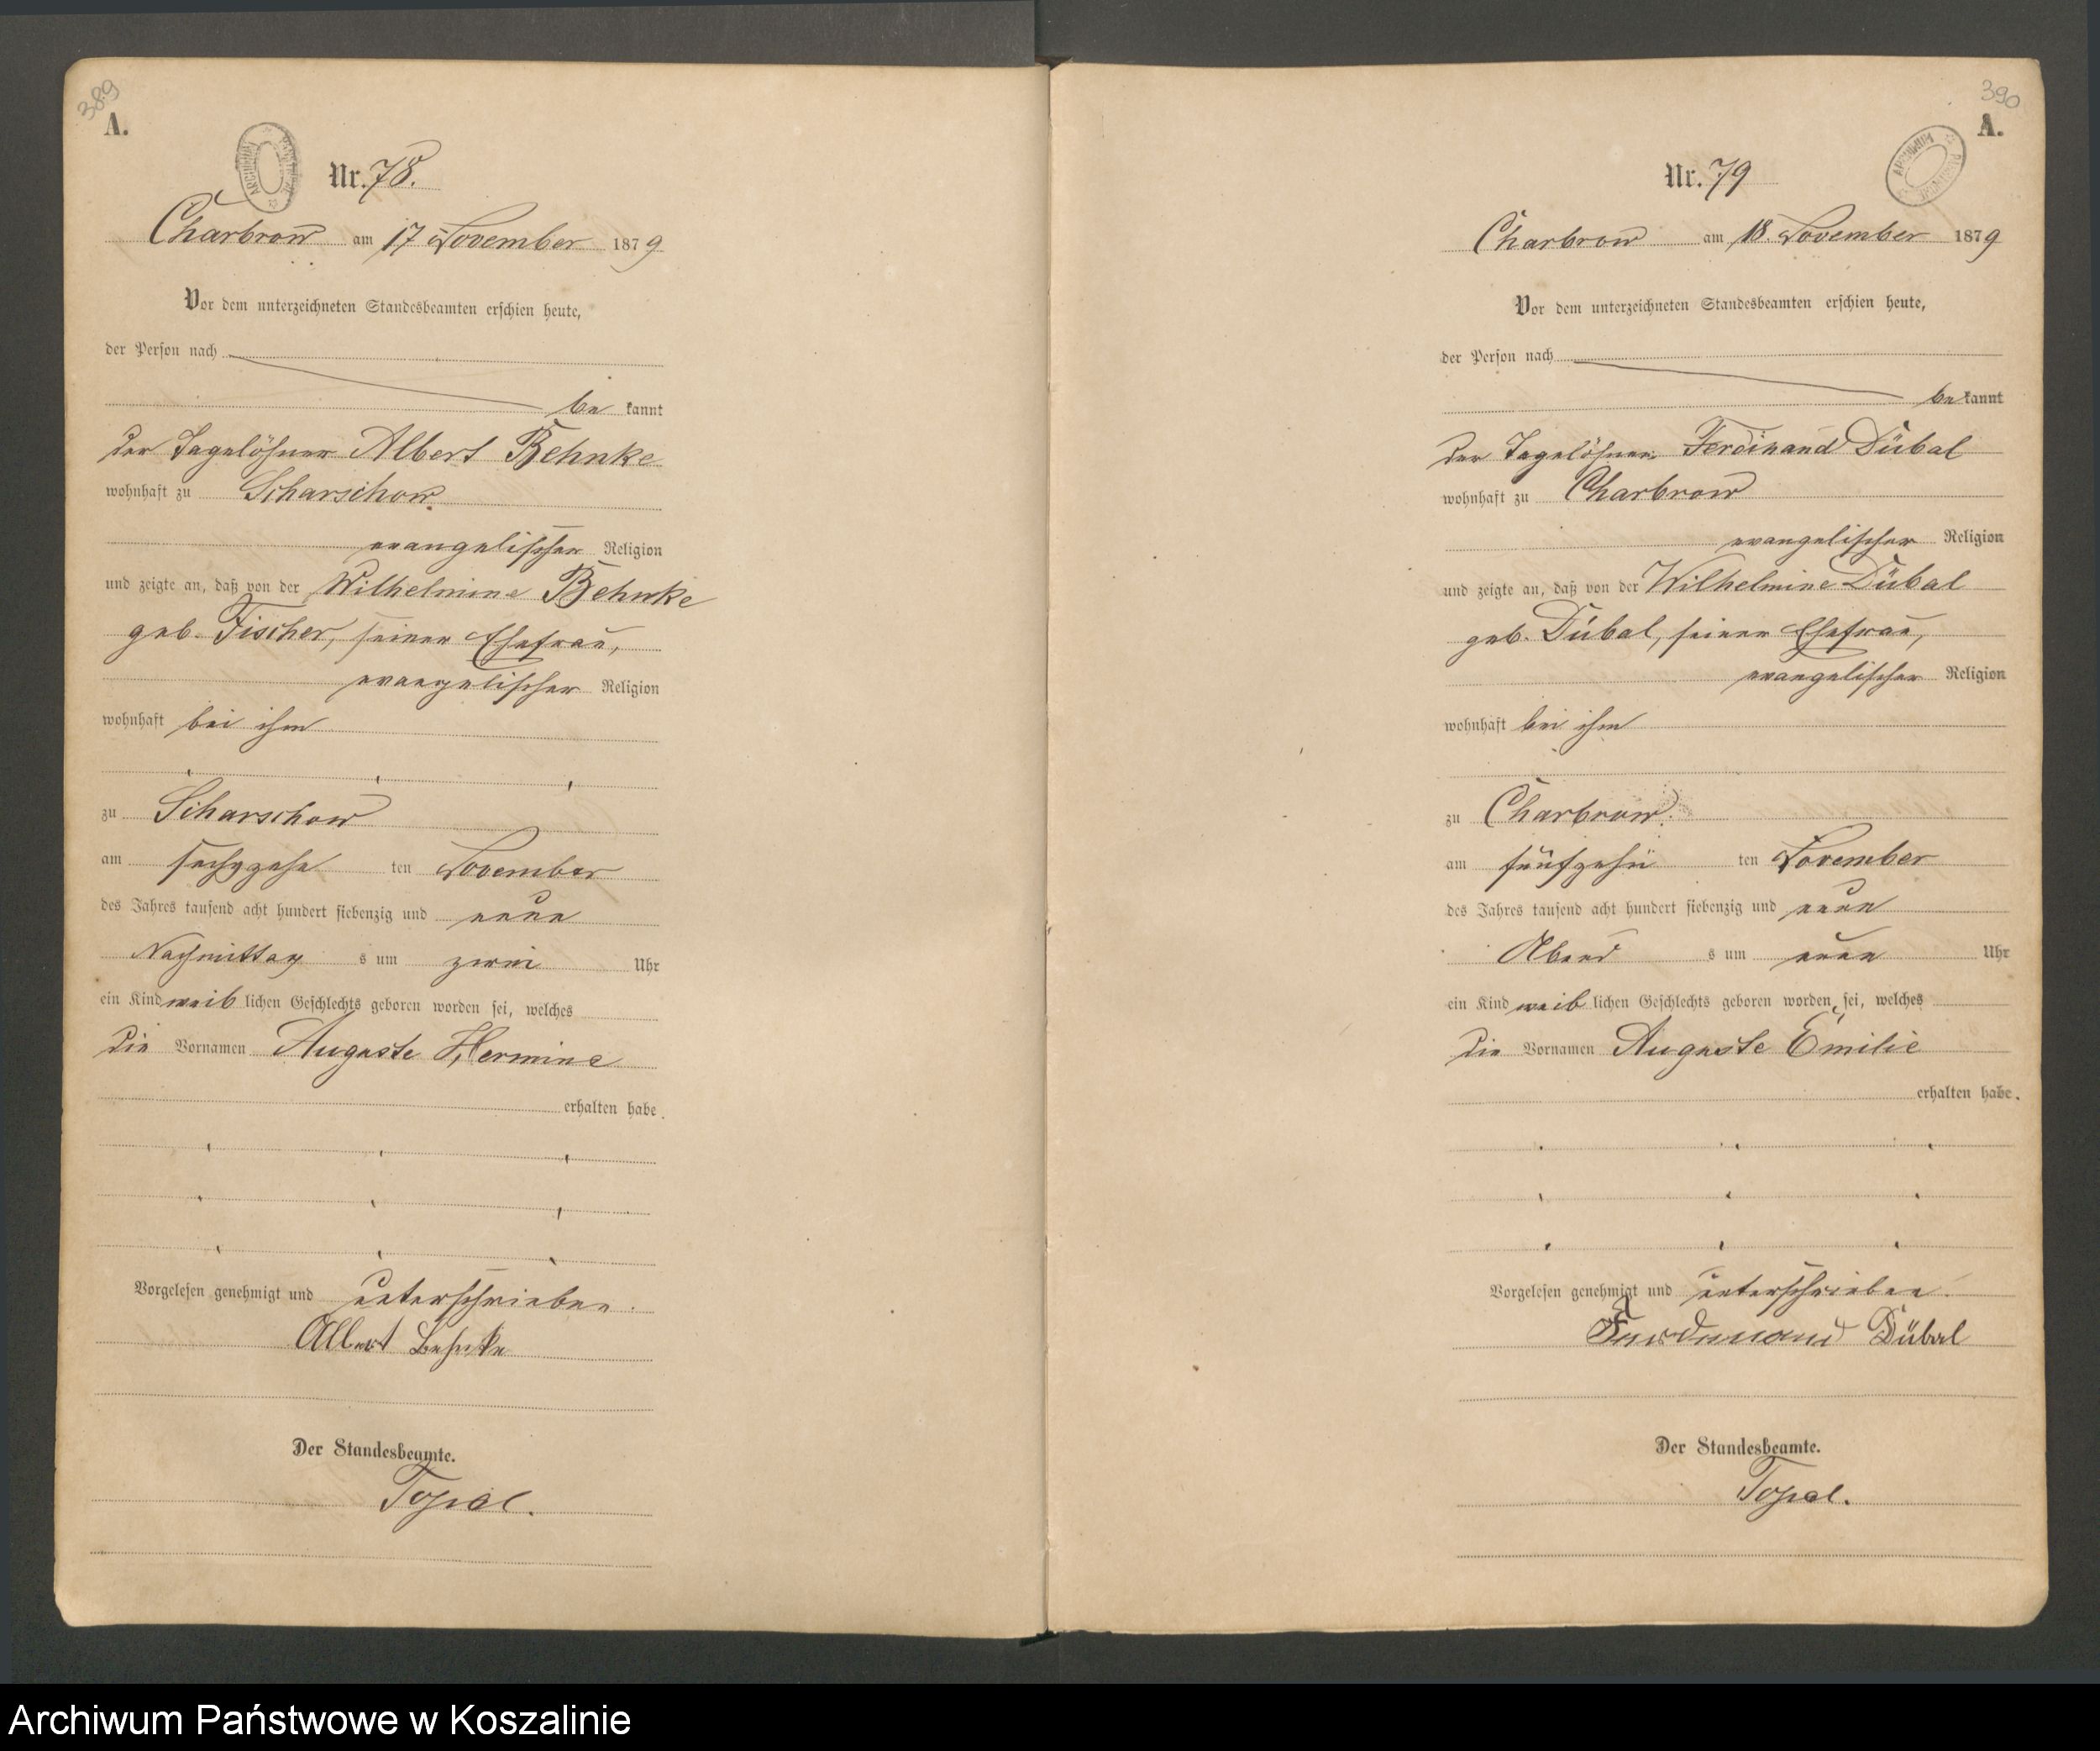 389
A.
ARCHIWUM PAŃSTWOWE
Nr. 78.
Charbrow am 17 November 1879
Vor dem unterzeichneten Standesbeamten erschien heute,
der Person nach
be kannt
der Tagelöhner Albert Behnke
wohnhaft zu Scharschow
evangelischer Religion
und zeigte an, daß von der Wilhelmine Behnke
geb. Fischer, seiner Ehefrau,
evangelischer Religion
wohnhaft bei ihm
zu Scharschow
am sechszehn ten November
des Jahres tausend acht hundert siebenzig und neun
Nachmittag s um zwei Uhr
ein Kind weib lichen Geschlechts geboren worden sei, welches
die Vornamen Auguste Hermine
erhalten habe.
Vorgelesen genehmigt und unterschrieben.
Albert Behnke
Der Standesbeamte.
390
A.
ARCHIWUM PAŃSTWOWE
Nr. 79
Charbrow am 18. November 1879
Vor dem unterzeichneten Standesbeamten erschien heute,
der Person nach
be kannt
der Tagelöhner Ferdinand Dübal
wohnhaft zu Charbrow
evangelischer Religion
und zeigte an, daß von der Wilhelmine Dübal
geb. Dübal, seiner Ehefrau,
evangelischer Religion
wohnhaft bei ihm
zu Charbrow.
am fünfzehn ten November
des Jahres tausend acht hundert siebenzig und neun
Abend s um neun Uhr
ein Kind weib lichen Geschlechts geboren worden sei, welches
die Vornamen Auguste Emilie
erhalten habe.
Vorgelesen genehmigt und unterschrieben.
Dübal
Der Standesbeamte.
Archiwum Państwowe w Koszalinie